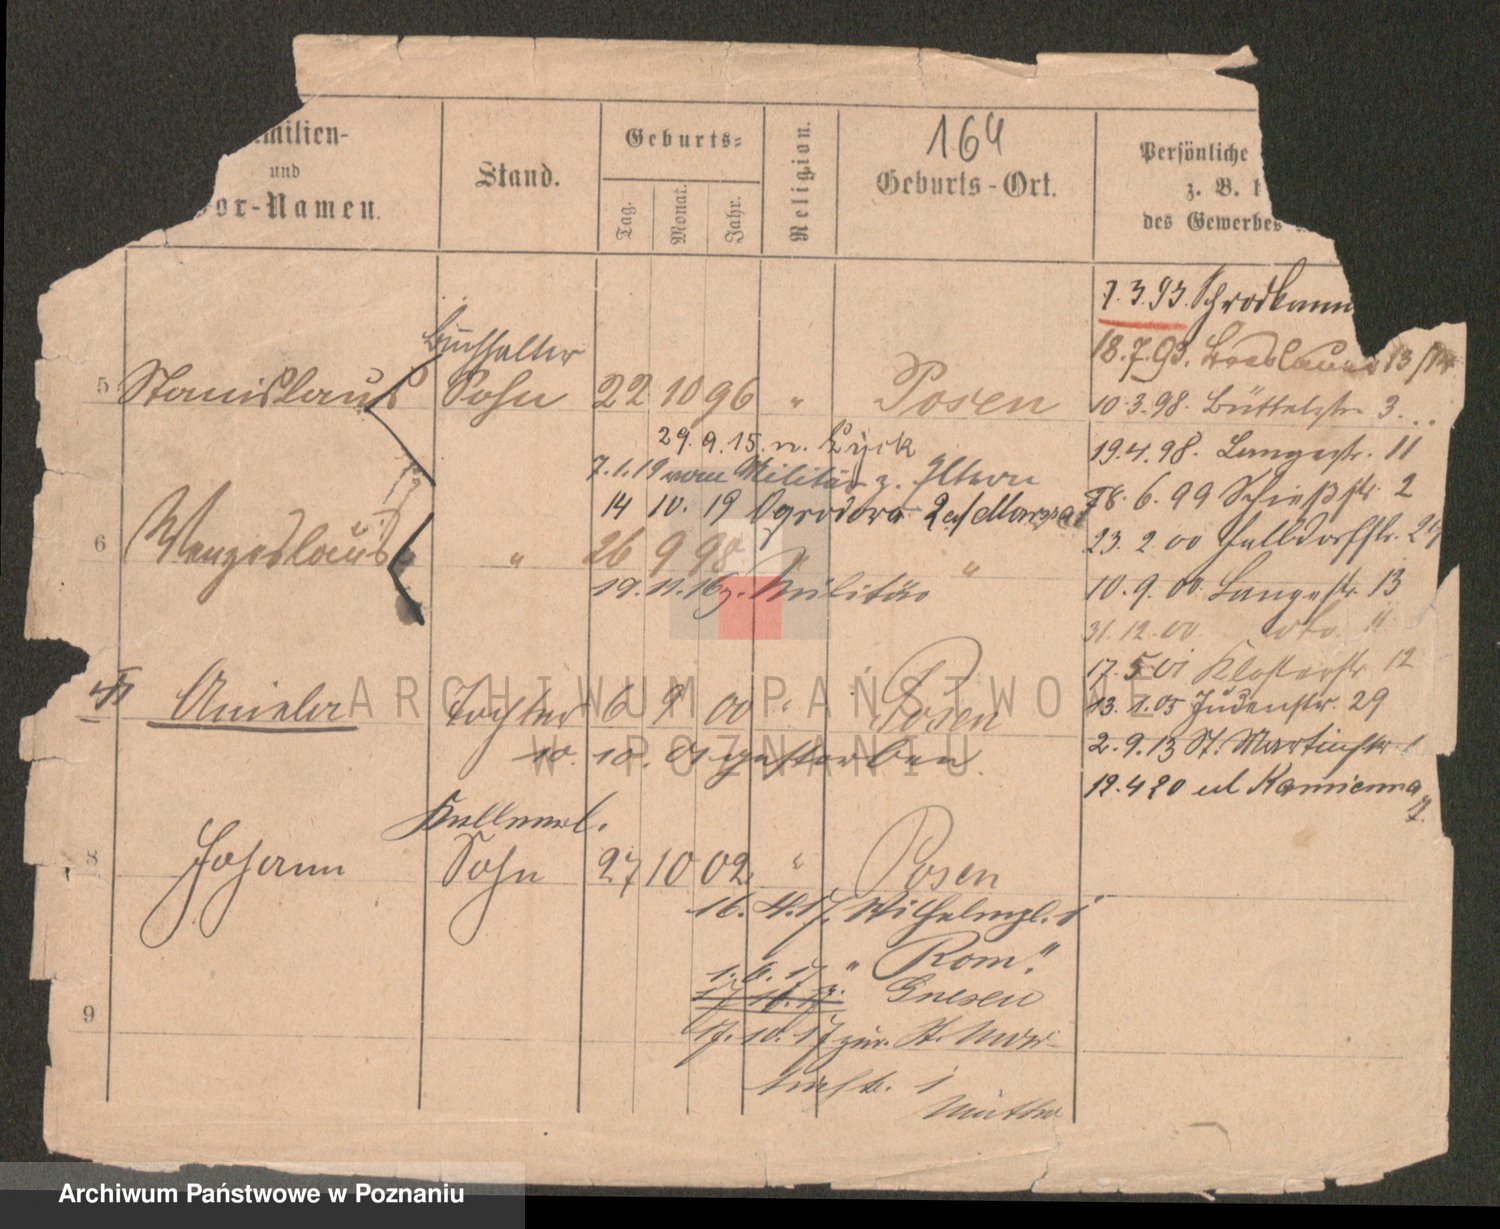 164
milien-
und
or-Namen.
Stand.
Geburts-
Tag.
Monat.
Jahr.
Religion.
Geburts-Ort.
Persönliche
z. B.
des Gewerbes
7.3.93.
18.7.93. 13/14
10.3.98. Büttelstr. 3.
19.4.98. Langestr. 11
6.99 Schießstr. 2
23.2.00
10.9.00. Langestr. 13
31.12.00. dto. "
17.5.01 Klosterstr. 12
13.1.05 Judenstr. 29
2.9.13 St. Martinstr.
12.4 20 ul Kamienna
7.
Buchhalter
5 Stanislaus Sohn 22 10 96 " Posen
29.9.15. n. Lyck
7.1.19 vom Militär z. Eltern
14 10. 19
6 Wenzeslaus " 26 9 98 " "
19.11.16 z. Militär
Aniela Tochter 6 9 00 " Posen
10. 10. 01 gestorben.
8 Johann Sohn 27 10 02. " Posen
16. 4. 17. Wilhelmpl. 1
1. 6. 17 " Rom."
Gnesen
9
17. 10. 17 zur. St. Mar-
tinstr. 1
Mutter
ARCHIWUM PAŃSTWOWE
W POZNANIU
Archiwum Państwowe w Poznaniu